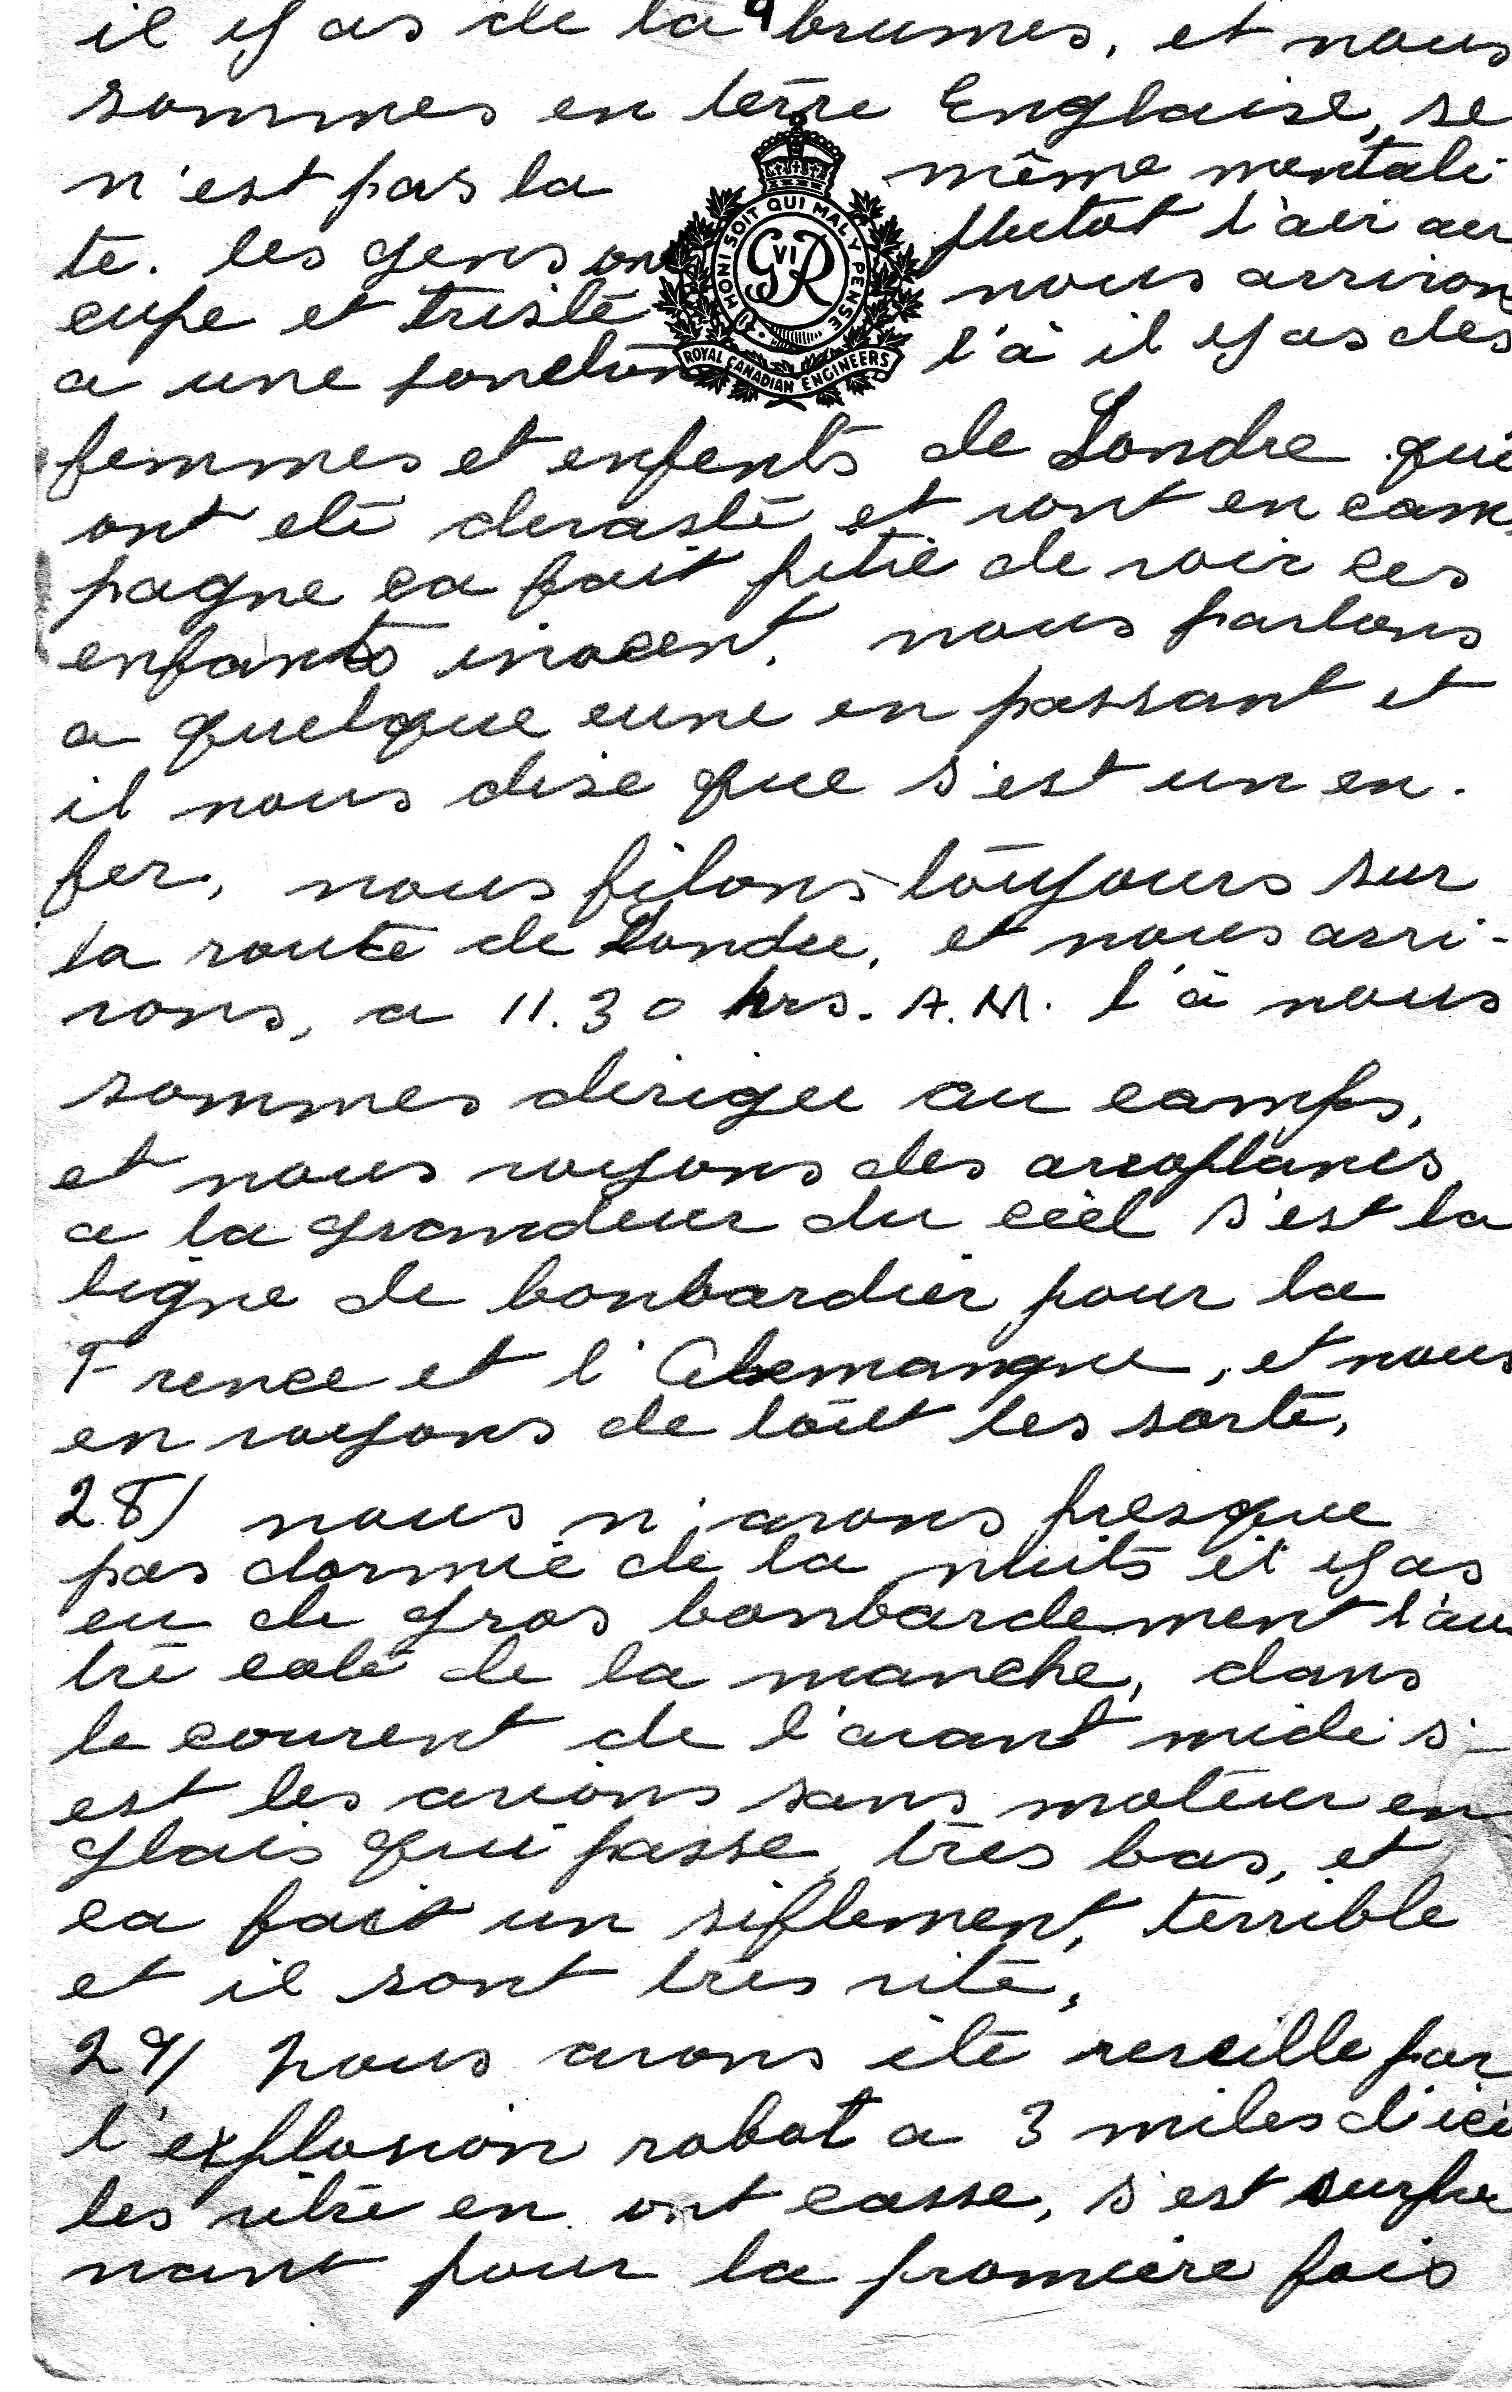 9
il y as de la brumes, et nous
sommes en terre Englaise, se
n'est pas la même mentali
te. les gens on plutot l'air aucu
cupe et triste nous arrivons
a une jonction l'à il y as des
HONI SOIT QUI MAL Y PENSE
G VI R
ROYAL CANADIAN ENGINEERS
femmes et enfents de Londre qui
ont eté devasté et vont en cam
pagne ca fait pitié de voir ces
enfants inocent, nous parlons
a quelque eune en passant et
il nous dise que s'est un en.
fer, nous filons toujours sur
la route de Londre, et nous arri-
vons, a 11.30 hrs. A.M. l'à nous
sommes diriger au camps,
et nous voyons des areoplanes
a la grandeur du ciel s'est la
ligne de bonbardier pour la
Frence et l'Alemangne, et nous
en voyons de tout les sorte,
28/ nous n'avons presque
pas dormie de la nuits it y as
eu de gros bonbardement l'au
tre coté de la manche, dans
le courent de l'avant midi s'-
est les avions sans moteur en
glais qui passe très bas, et
ca fait un siflement, terrible
et il sont très vite,
29/ nous avons été reveille par
l'explosion robot a 3 miles d'ici
les vitre en ont casse, s'est surpre
nant pour la promiere fois